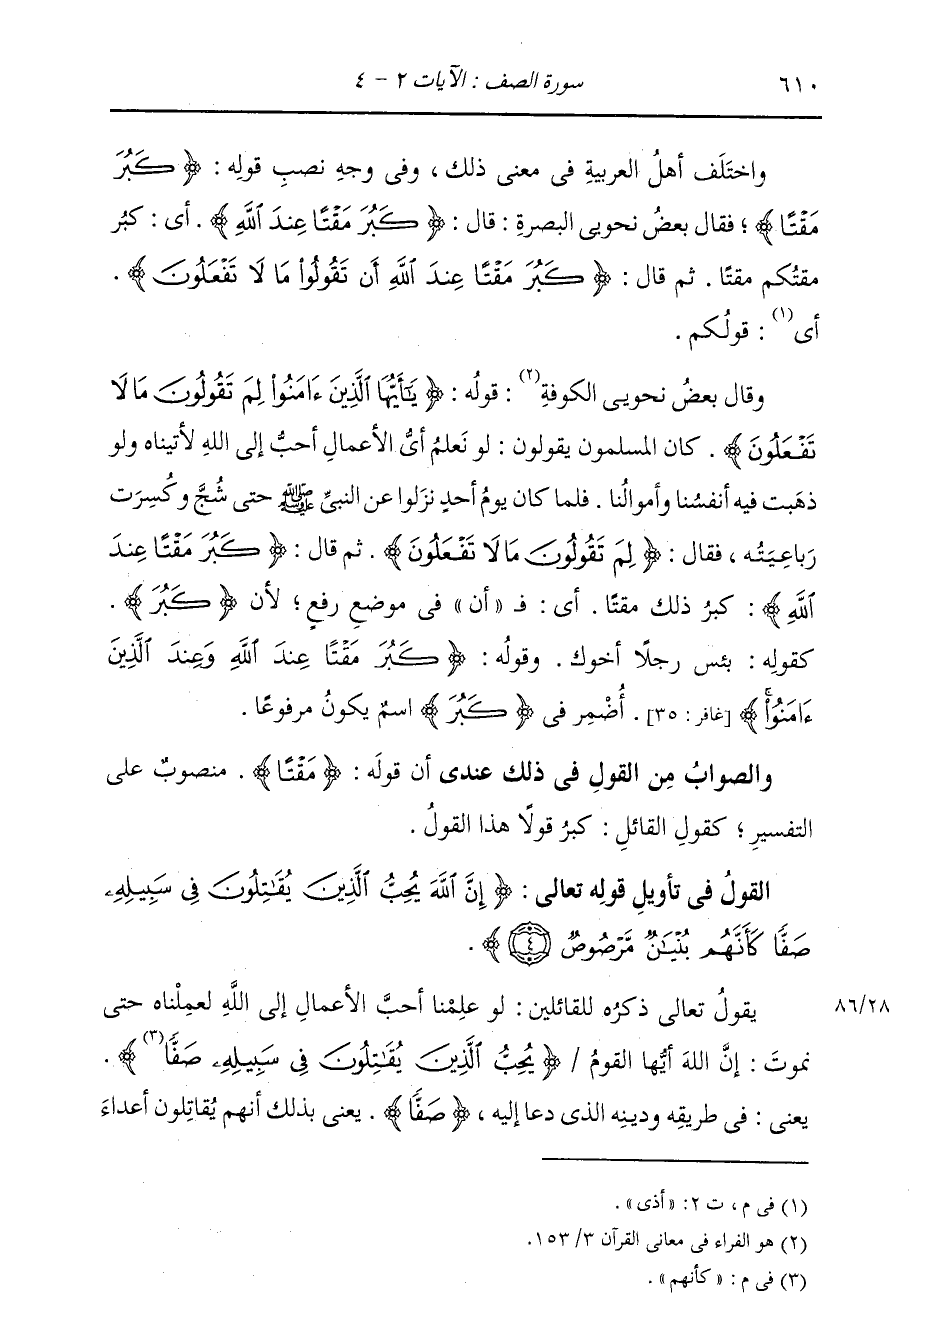 ٦١٠ سورة الصف : الآيات ٢ - ٤
واختَلَف أهلُ العربيةِ فى معنى ذلك ، وفى وجهِ نصبِ قولِه : ﴿ كَبُرَ
مَقْتًا ﴾ ؛ فقال بعضُ نحويى البصرةِ : قال : ﴿ كَبُرَ مَقْتًا عِندَ ٱللَّهِ ﴾ . أى : كبُر
مقتُكم مقتًا . ثم قال : ﴿ كَبُرَ مَقْتًا عِندَ ٱللَّهِ أَن تَقُولُوا۟ مَا لَا تَفْعَلُونَ ﴾ .
أى(١) : قولُكم .
وقال بعضُ نحويى الكوفةِ(٢) : قولُه : ﴿ يَٰٓأَيُّهَا ٱلَّذِينَ ءَامَنُوا۟ لِمَ تَقُولُونَ مَا لَا
تَفْعَلُونَ ﴾ . كان المسلمون يقولون : لو نَعلمُ أىُّ الأعمالِ أحبُّ إلى اللهِ لأتيناه ولو
ذهَبت فيه أنفسُنا وأموالُنا . فلما كان يومُ أحدٍ نزَلوا عن النبىِّ ﷺ حتى شُجَّ وكُسِرَت
رَباعِيَتُه ، فقال : ﴿ لِمَ تَقُولُونَ مَا لَا تَفْعَلُونَ ﴾ . ثم قال : ﴿ كَبُرَ مَقْتًا عِندَ
ٱللَّهِ ﴾ : كبرُ ذلك مقتًا . أى : فـ «أن» فى موضعِ رفعٍ ؛ لأن ﴿ كَبُرَ ﴾ .
كقولِه : بئس رجلًا أخوك . وقولُه : ﴿ كَبُرَ مَقْتًا عِندَ ٱللَّهِ وَعِندَ ٱلَّذِينَ
ءَامَنُوا۟ۚ ﴾ [غافر : ٣٥] . أُضْمِر فى ﴿ كَبُرَ ﴾ اسمٌ يكونُ مرفوعًا .
والصوابُ مِن القولِ فى ذلك عندى أن قولَه : ﴿ مَقْتًا ﴾ . منصوبٌ على
التفسيرِ ؛ كقولِ القائلِ : كبرُ قولًا هذا القولُ .
القولُ فى تأويلِ قولِه تعالى : ﴿ إِنَّ ٱللَّهَ يُحِبُّ ٱلَّذِينَ يُقَٰتِلُونَ فِى سَبِيلِهِۦ
صَفًّا كَأَنَّهُم بُنْيَٰنٌ مَّرْصُوصٌ ٤ ﴾ .
يقولُ تعالى ذكرُه للقائلين : لو علِمْنا أحبَّ الأعمالِ إلى اللَّهِ لعمِلْناه حتى ٨٦/٢٨
نموتَ : إنَّ اللهَ أيُّها القومُ / ﴿ يُحِبُّ ٱلَّذِينَ يُقَٰتِلُونَ فِى سَبِيلِهِۦ صَفًّا(٣) ﴾ .
يعنى : فى طريقِه ودينِه الذى دعا إليه ، ﴿ صَفًّا ﴾ . يعنى بذلك أنهم يُقاتِلون أعداءَ
(١) فى م ، ت ٢: «أذى» .
(٢) هو الفراء فى معانى القرآن ٣/ ١٥٣.
(٣) فى م : «كأنهم» .